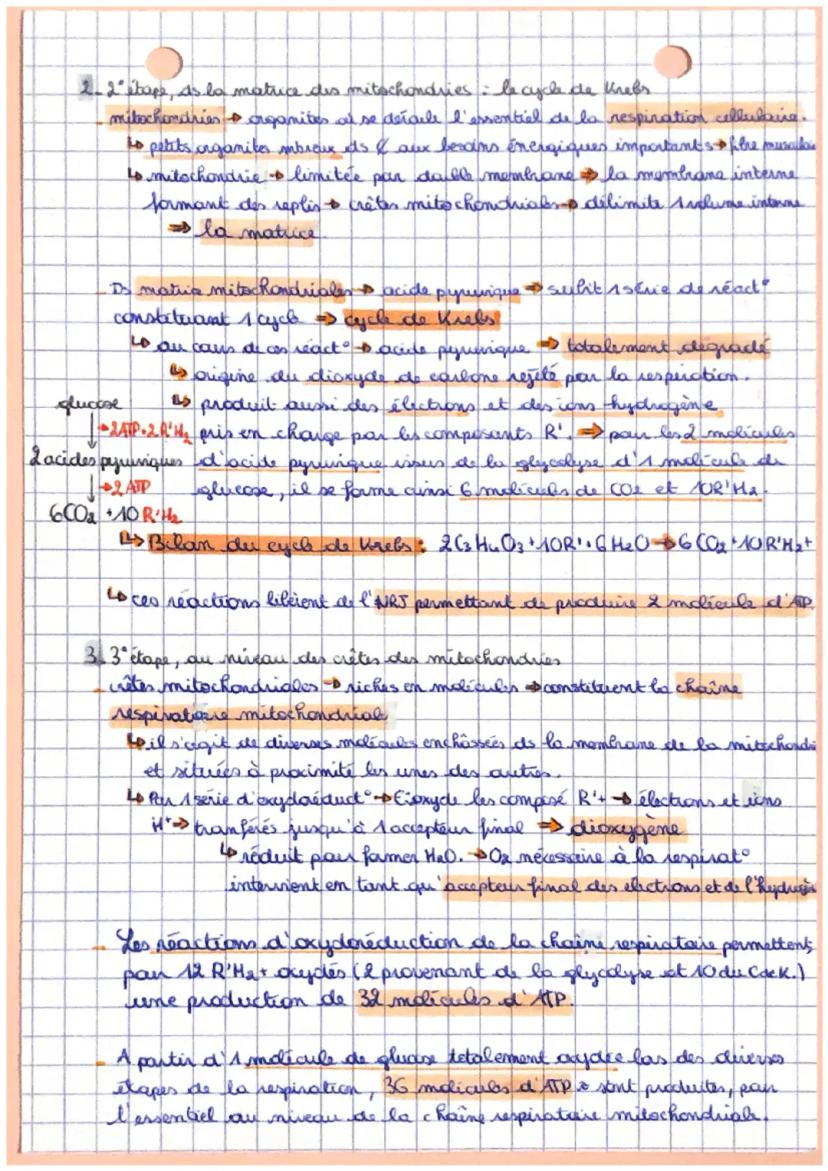 2_ 2° étape, ds la matrice des mitochondries : le cycle de Krebs
_ mitochondries → organites où se déroule l'essentiel de la respiration cellulaire.
↳ petits organites nbreux ds ₡ aux besoins énergiques importants → fibre muscula
↳ mitochondrie → limitée par double membrane ⇒ la membrane interne
formant des replis → crêtes mitochondriales → délimite 1 volume interne
⇒ la matrice
_ Ds matrice mitochondriales → acide pyruvique → subit 1 série de réact°
constituant 1 cycle ⇒ cycle de Krebs
↳ au cours de ces réact° → acide pyruvique ⇒ totalement dégradé
↳ origine du dioxyde de carbone rejeté par la respiration.
↳ produit aussi des électrons et des ions hydrogène
pris en charge par les composants R'. ⇒ pour les 2 molécules
d'acide pyruvique issus de la glycolyse d'1 molécule de
glucose, il se forme ainsi 6 molécules de CO2 et 10R'H2.
glucose
↓ → 2ATP+2R'H2
2 acides pyruviques
↓ → 2 ATP
6CO2 +10 R'H2
↳ Bilan du cycle de Krebs : 2C3H4O3+10R'+6H2O → 6CO2+10R'H2+
↳ ces réactions libèrent de l'NRJ permettant de produire 2 molécule d'ATP.
3. 3° étape, au niveau des crêtes des mitochondries
_ crêtes mitochondriales → riches en molécules → constituent la chaîne
respiratoire mitochondriale
↳ il s'agit de diverses molécules enchâssées ds la membrane de la mitochondi
et situées à proximité les unes des autres.
↳ Par 1 série d'oxydoréduct° → oxyde les composé R'+ → électrons et ions
H+ → tranférés jusqu'à 1 accepteur final ⇒ dioxygène
↳ réduit pour former H2O. → O2 nécessaire à la respirat°
intervient en tant qu'accepteur final des électrons et de l'hydrogèn
_ Les réactions d'oxydoréduction de la chaîne respiratoire permettent,
pour 12 R'H2+ oxydés (2 provenant de la glycolyse et 10 du CdeK.)
une production de 32 molécules d'ATP.
_ A partir d'1 molécule de glucose totalement oxydée lors des diverses
étapes de la respiration, 36 molécules d'ATP sont produites, pour
l'essentiel au niveau de la chaîne respiratoire mitochondriale.